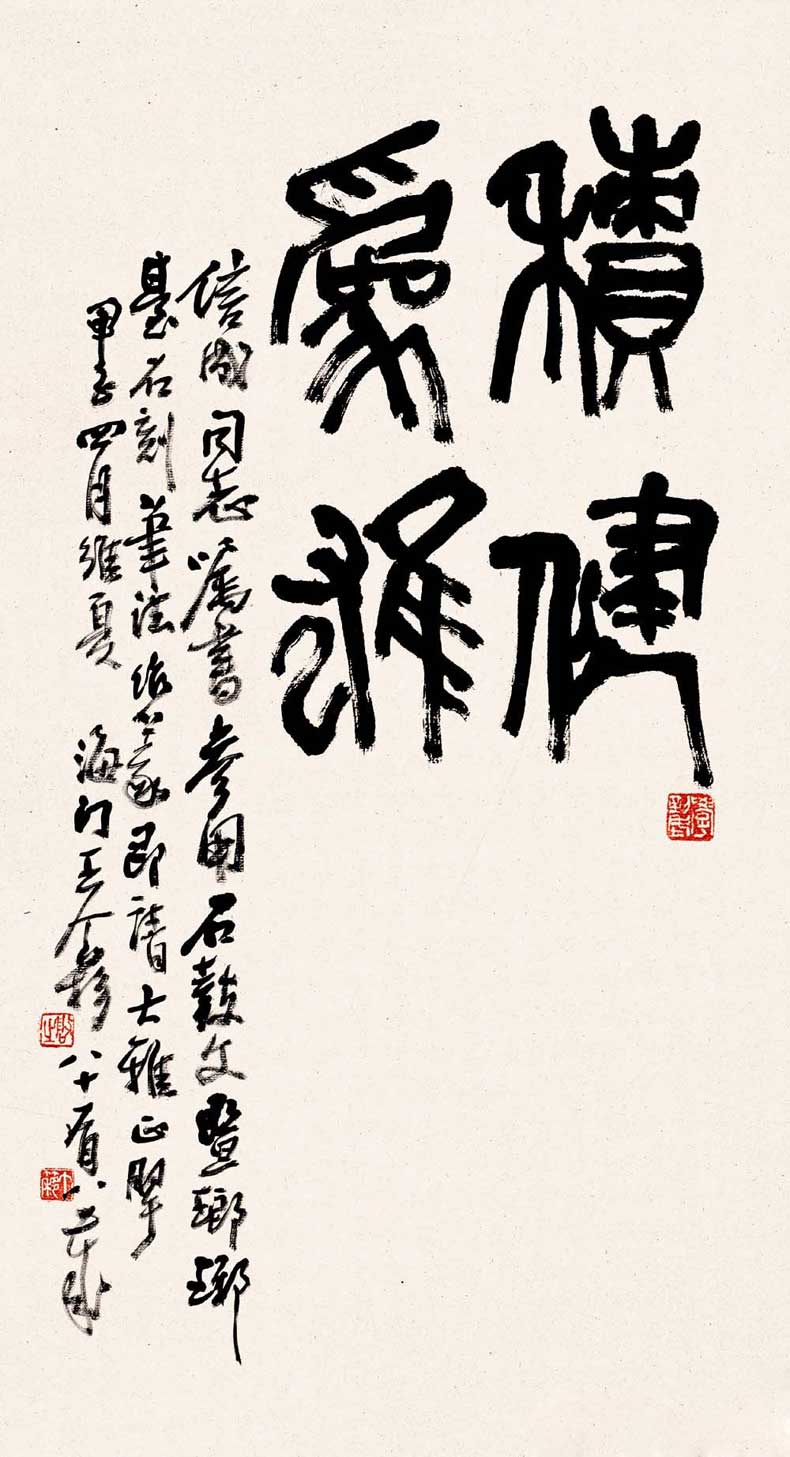 積健
為雄
信成同志属書參用石鼓文暨瑯琊
臺石刻筆法作篆即請大雅正擘
甲子四月維夏 海門王个簃 八十有八歲